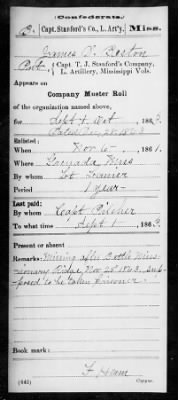 (Confederate.)
B Capt. Stanford's Co., L. Art'y. Miss.
James D. Boston
Pvt., Capt. T. J. Stanford's Company,
L. Artillery, Mississippi Vols.
Appears on
Company Muster Roll
of the organization named above,
for Sept & Oct, 1863.
Dated Nov 28 1863
Enlisted:
When Nov 6, 1861.
Where Grenada Miss
By whom
Period 1 year
Last paid:
By whom Capt Pilcher
To what time Sept 1, 1863.
Present or absent
Remarks: Missing after Battle Miss-
ionary Ridge, Nov 25 1863, sup-
posed to be taken prisoner.
Book mark:
(642) Copyist.